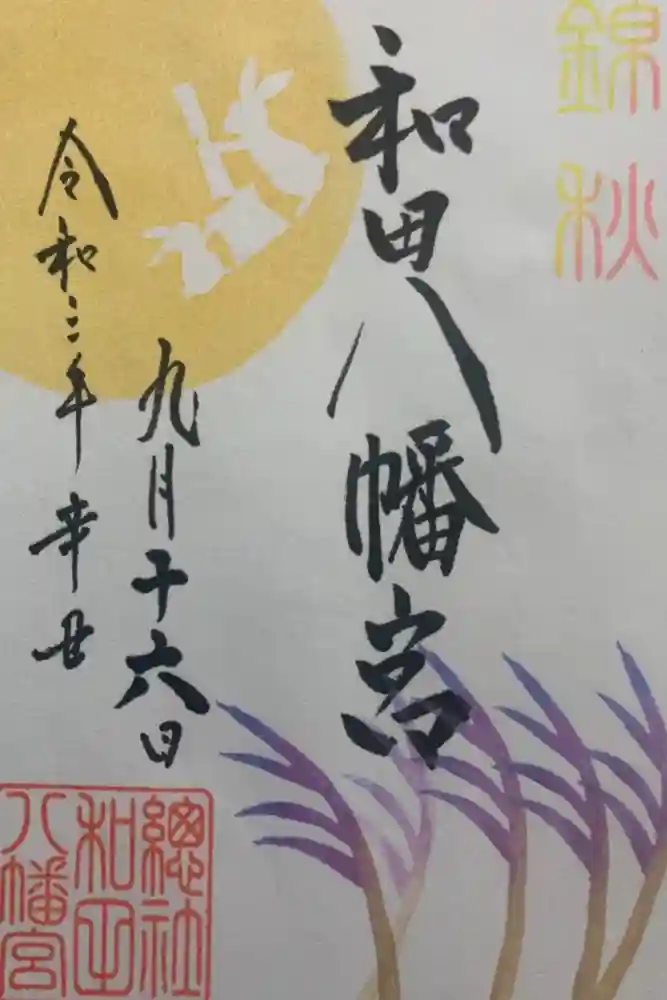 錦秋
和田八幡宮
九月十六日
令和三年辛丑
總社
和田
八幡宮